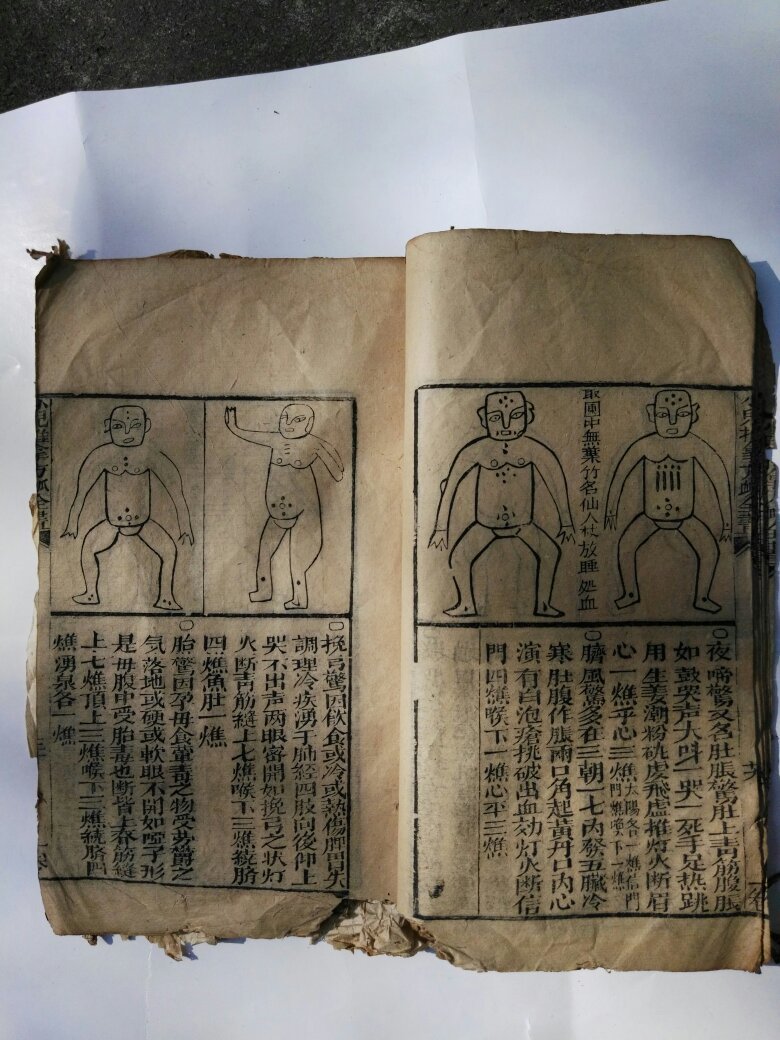 最園中無葉竹名仙人杖放睡処血
〇夜啼驚又名肚脹驚肚上青筋腹脹
如鼓哭声大叫一哭一死手足热跳
用生姜潮粉
推灯火断眉
心一燋乎心三燋太陽各一燋信門
〇臍風驚多在三朝一七内發五臟冷
寒肚腹作脹兩口角起黄丹口内心
演有白泡瘡挑破出血効灯火断信
門四燋喉下一燋心平三燋
〇挽弓驚因飲食或冷或熱傷脾胃失
調理冷疾湧于肺經四肢向後仰上
哭不出声两眼密開如挽弓之状灯
火断青筋縫上七燋喉下三燋繞臍
四燋魚肚一燋
〇胎驚因孕母食葷毒之物受
之
気落地或硬或軟眼不開如啞子形
是毋腹中受胎毒也断背上春筋縫
上七燋頂上三燋喉下三燋繞臍四
燋湧泉各一燋